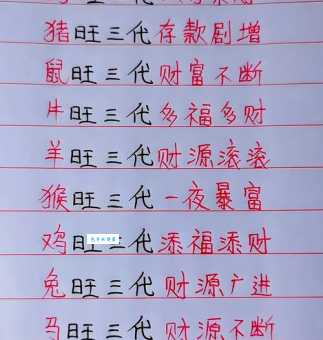 猪旺三代存款剧增
鼠旺三代财富不断
牛旺三代多福多财
羊旺三代财源滚滚
猴旺三代一夜暴富
鸡旺三代添福添财
兔旺三代财源广进
马旺三代财源不断